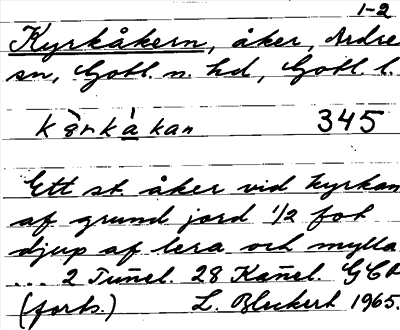 1-2
Kyrkåkern, åker, Ardre
sn, Gotl. n. hd, Gotl. l.
345
Ett st. åker vid kyrkan
af grund jord 1/2 fot
djup af lera och mylla
... 2 Tun̄el. 28 Kan̄el.
(forts.) L. Bleckert 1965.